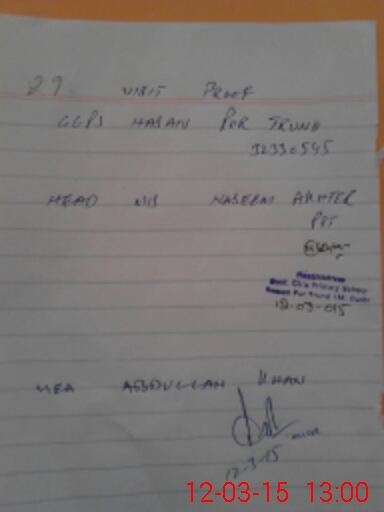 29 VISIT PROOF
GGPS HASAN PUR TRUND
32330545
HEAD MIS NASEEM AKHTER
PST
Headmistress
Govt. Girls Primary School
Hassan Pur Trund
12-03-015
MEA ABDULLAH KHAN
12-3-15
12-03-15 13:00